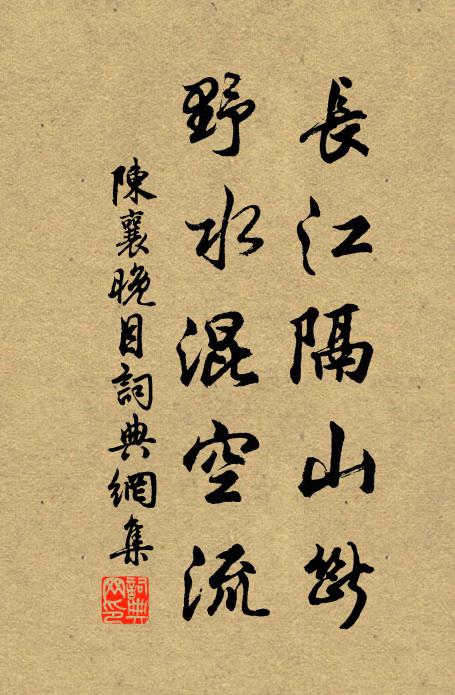 長江隔山斷
野水混空流
陳襄晚目詞典網集
詞典網印